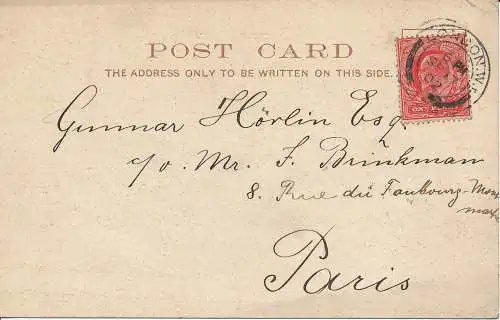 POST CARD
THE ADDRESS ONLY TO BE WRITTEN ON THIS SIDE.
LONDON.W.
Gunnar Hörlin Esq.
c/o. Mr. F. Brinkman
8. Rue du Faubourg-Mont
martre
Paris